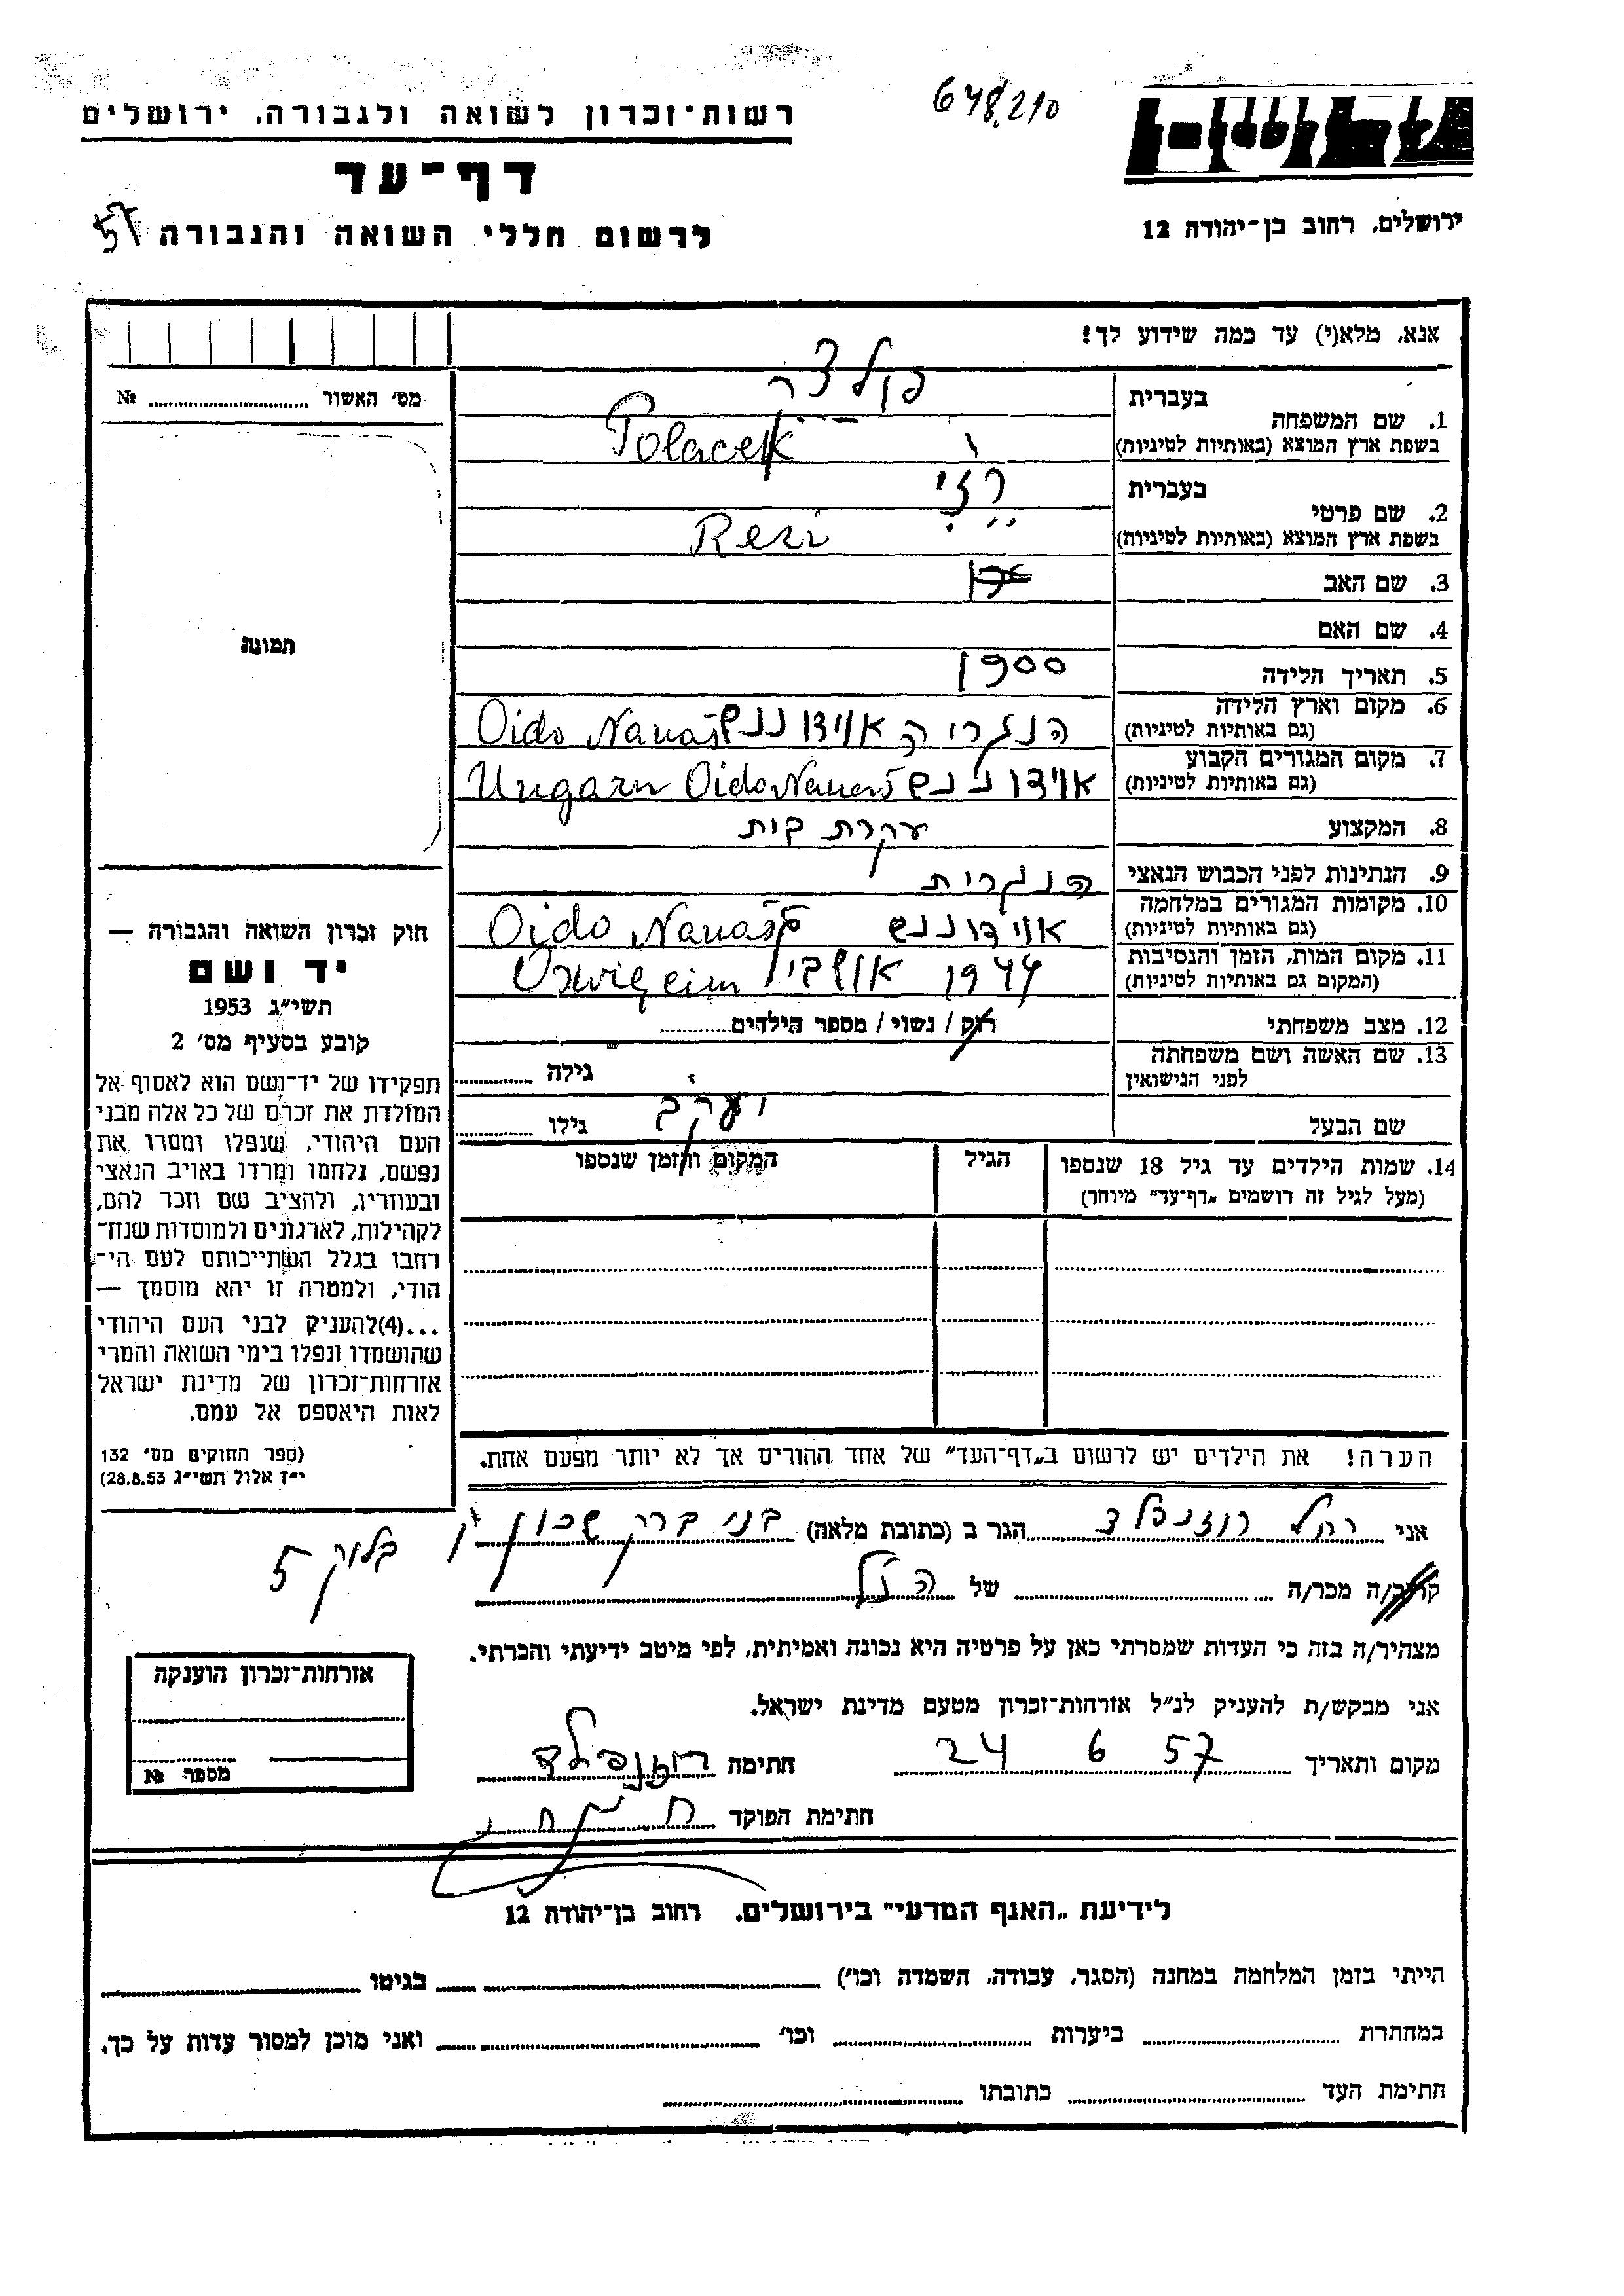 רשות־זכרון לשואה ולגבורה, ירושלים
648210
דף־עד
לרשום חללי השואה והגבורה 57
ירושלים, רחוב בן־יהודה 12
אנא, מלא(י) עד כמה שידוע לך!
מס׳ האשור № 
בעברית
1. שם המשפחה
בשפת ארץ המוצא (באותיות לטיניות) Polacek
בעברית רזי
2. שם פרטי
בשפת ארץ המוצא (באותיות לטיניות) Resi
3. שם האב
4. שם האם
5. תאריך הלידה 1900
6. מקום וארץ הלידה
(גם באותיות לטיניות) הונגריה אוידו ננש Oido Nanaš
7. מקום המגורים הקבוע
(גם באותיות לטיניות) אוידו ננש Ungarn Oido Nanaš
8. המקצוע עקרת בית
9. הנתינות לפני הכבוש הנאצי הנגרית
10. מקומות המגורים במלחמה
(גם באותיות לטיניות) אוידו ננש Oido Nanaš
11. מקום המות, הזמן והנסיבות
(המקום גם באותיות לטיניות) 1944
12. מצב משפחתי רוק / נשוי / מספר הילדים
13. שם האשה ושם משפחתה
לפני הנישואין גילה
שם הבעל יעקב גילו
14. שמות הילדים עד גיל 18 שנספו
(מעל לגיל זה רושמים „דף־עד” מיוחד)
הגיל
המקום והזמן שנספו
תמונה
חוק זכרון השואה והגבורה —
יד ושם
תשי״ג 1953
קובע בסעיף מס׳ 2
תפקידו של יד־ושם הוא לאסוף אל
המולדת את זכרם של כל אלה מבני
העם היהודי, שנפלו ומסרו את
נפשם, נלחמו ומרדו באויב הנאצי
ובעוזריו, ולהציב שם וזכר להם,
לקהילות, לארגונים ולמוסדות שנח־
רחבו בגלל השתייכותם לעם הי־
הודי, ולמטרה זו יהא מוסמך —
...(4)להעניק לבני העם היהודי
שהושמדו ונפלו בימי השואה והמרי
אזרחות־זכרון של מדינת ישראל
לאות היאספם אל עמם.
(ספר החוקים מס׳ 132
י״ז אלול תשי״ג 28.8.53)
הערה! את הילדים יש לרשום ב„דף־העד” של אחד ההורים אך לא יותר מפעם אחת.
אני רחל רוזנפלד הגר ב (כתובת מלאה) בני ברק שכון ו
בלוק 5
קרוב/ה מכר/ה של הנ״ל
מצהיר/ה בזה כי העדות שמסרתי כאן על פרטיה היא נכונה ואמיתית, לפי מיטב ידיעתי והכרתי.
אני מבקש/ת להעניק לנ״ל אזרחות־זכרון מטעם מדינת ישראל.
מקום ותאריך 24 6 57 חתימה רוזנפלד
חתימת הפוקד
אזרחות־זכרון הוענקה
מספר №
לידיעת „האגף המדעי” בירושלים. רחוב בן־יהודה 12
הייתי בזמן המלחמה במחנה (הסגר, עבודה, השמדה וכו׳) בגיטו
במחתרת ביערות וכו׳ ואני מוכן למסור עדות על כך.
חתימת העד כתובתו